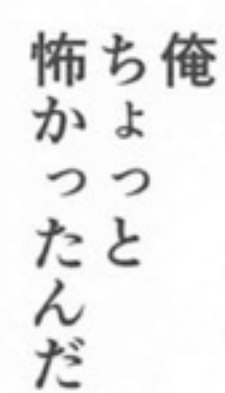 俺
ちょっと
怖かったんだ